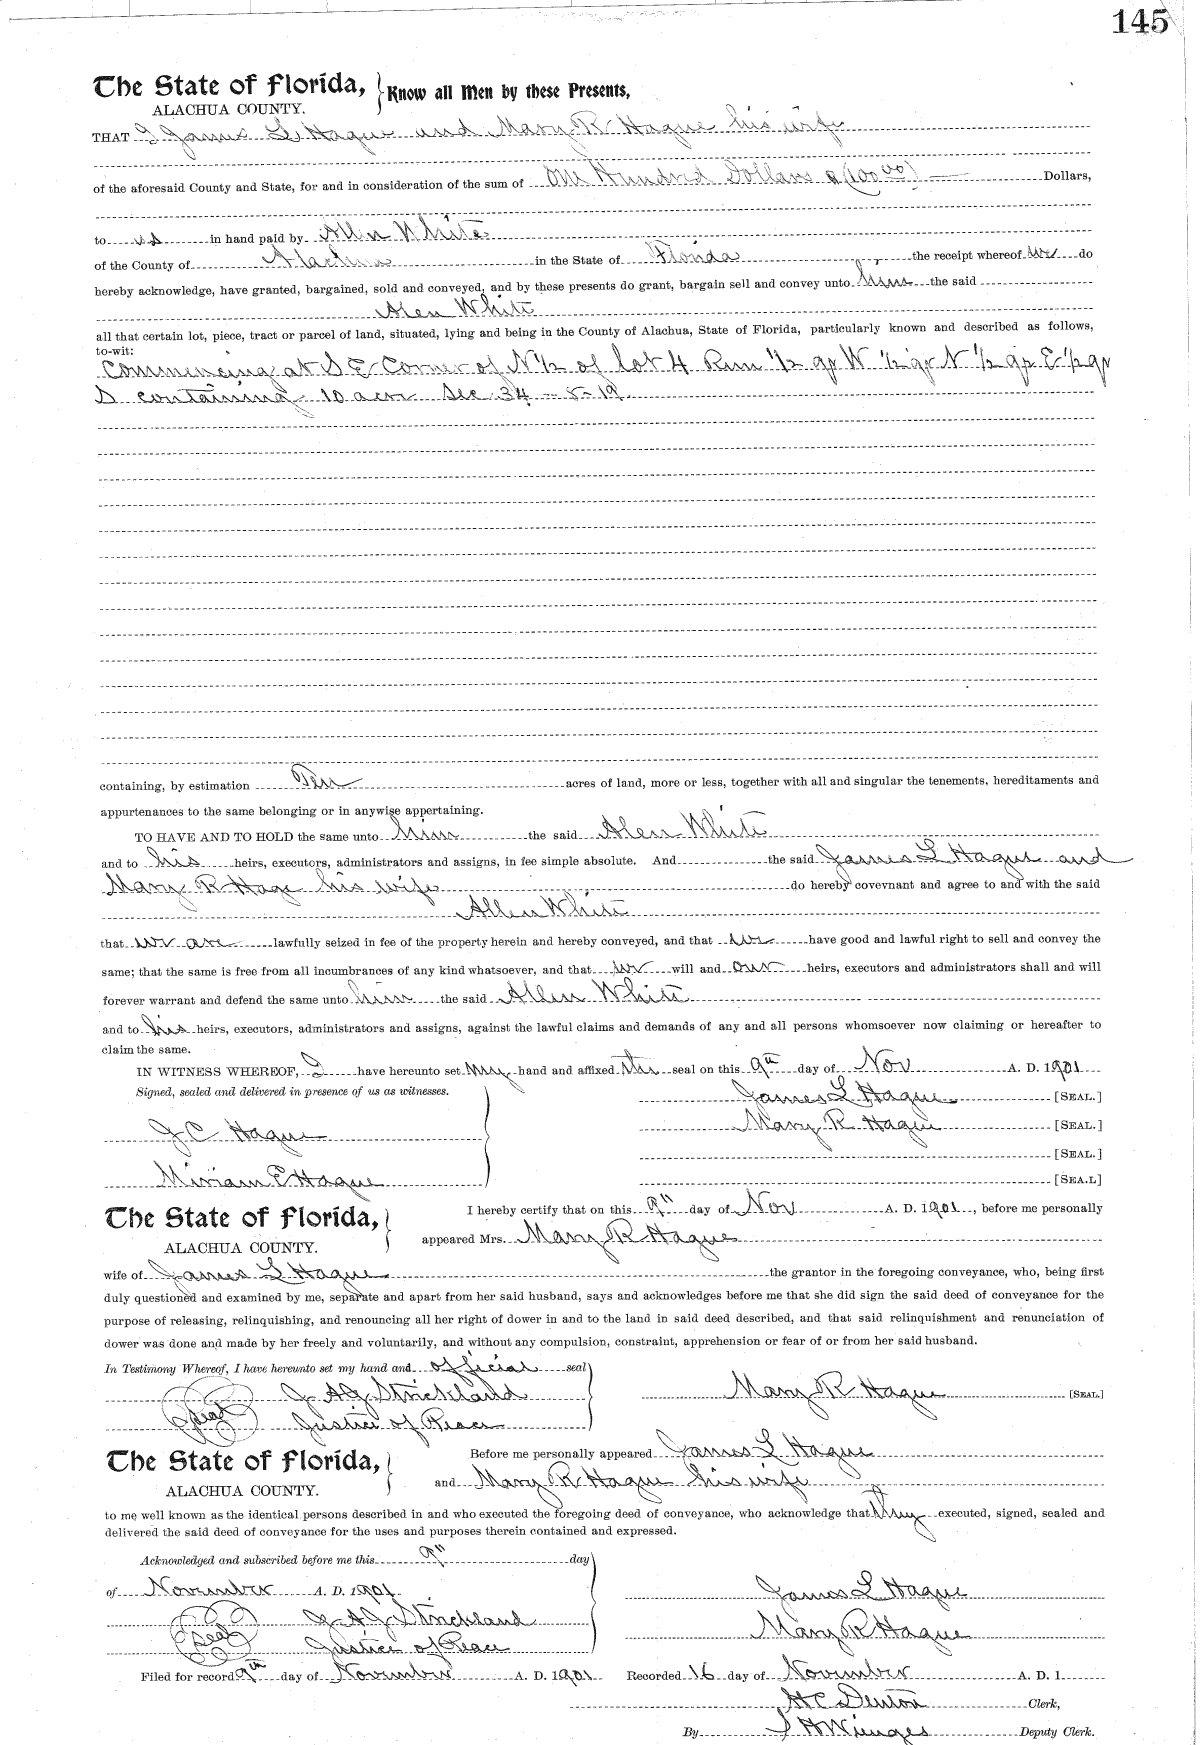 145
The State of Florida, Know all Men by these Presents,
ALACHUA COUNTY.
THAT I James L Hague and Mary R Hague his wife
of the aforesaid County and State, for and in consideration of the sum of One Hundred Dollars (100 00) Dollars,
to us in hand paid by Allen White
of the County of Alachua in the State of Florida the receipt whereof we do
hereby acknowledge, have granted, bargained, sold and conveyed, and by these presents do grant, bargain sell and convey unto him the said
Alen White
all that certain lot, piece, tract or parcel of land, situated, lying and being in the County of Alachua, State of Florida, particularly known and described as follows,
to-wit:
Commencing at S E Corner of N 1/2 of lot 4 Run 1/2 qr W 1/2 qr N 1/2 qr E 1/2 qr
S containing 10 acre Sec 34 - 8 - 19
containing, by estimation Ten acres of land, more or less, together with all and singular the tenements, hereditaments and
appurtenances to the same belonging or in anywise appertaining.
TO HAVE AND TO HOLD the same unto him the said Alen White
and to his heirs, executors, administrators and assigns, in fee simple absolute. And the said James L Hague and
Mary R Hage his wife do hereby covevnant and agree to and with the said
Allen White
that we are lawfully seized in fee of the property herein and hereby conveyed, and that we have good and lawful right to sell and convey the
same; that the same is free from all incumbrances of any kind whatsoever, and that we will and our heirs, executors and administrators shall and will
forever warrant and defend the same unto him the said Allen White
and to his heirs, executors, administrators and assigns, against the lawful claims and demands of any and all persons whomsoever now claiming or hereafter to
claim the same.
IN WITNESS WHEREOF, I have hereunto set my hand and affixed seal on this 9th day of Nov A. D. 1901
Signed, sealed and delivered in presence of us as witnesses. James L Hague [SEAL.]
J C Hague Mary R Hague [SEAL.]
[SEAL.]
Miriam E Hague [SEA.L]
The State of Florida, I hereby certify that on this 9" day of Nov A. D. 1901, before me personally
ALACHUA COUNTY. appeared Mrs. Mary R Hague
wife of James L Hague the grantor in the foregoing conveyance, who, being first
duly questioned and examined by me, separate and apart from her said husband, says and acknowledges before me that she did sign the said deed of conveyance for the
purpose of releasing, relinquishing, and renouncing all her right of dower in and to the land in said deed described, and that said relinquishment and renunciation of
dower was done and made by her freely and voluntarily, and without any compulsion, constraint, apprehension or fear of or from her said husband.
In Testimony Whereof, I have hereunto set my hand and official seal
Seal J A G Strickland Mary R Hague [SEAL.]
Justice of Peace
The State of Florida, Before me personally appeared James L Hague
ALACHUA COUNTY. and Mary R Hague his wife
to me well known as the identical persons described in and who executed the foregoing deed of conveyance, who acknowledge that they executed, signed, sealed and
delivered the said deed of conveyance for the uses and purposes therein contained and expressed.
Acknowledged and subscribed before me this 9" day
of November A. D. 1901 James L Hague
Seal J A G Strickland Mary R Hague
Justice of Peace
Filed for record 9th day of November A. D. 1901 Recorded 16 day of November A. D. 1
H C Denton Clerk,
By S H Wienges Deputy Clerk.